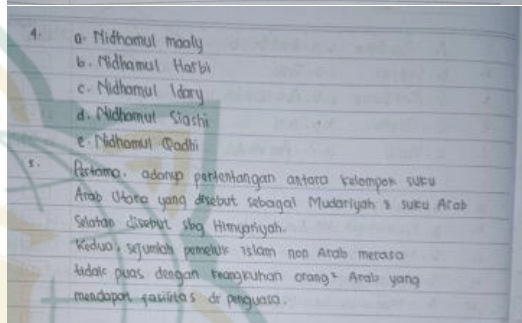 4. a. Nidhomul maaly
b. Nidhamul Harbi
c. Nidhomul Idary
d. Nidhomul Siashi
e. Nidhomul Qadhi
5. Pertama, adanya pertentangan antara kelompok suku
Arab Utara yang disebut sebagai Mudariyah & suku Arab
Selatan disebut sbg Himyariyah.
Kedua, sejumlah pemeluk Islam non Arab merasa
tidak puas dengan keangkuhan orang² Arab yang
mendapat fasilitas dr penguasa.